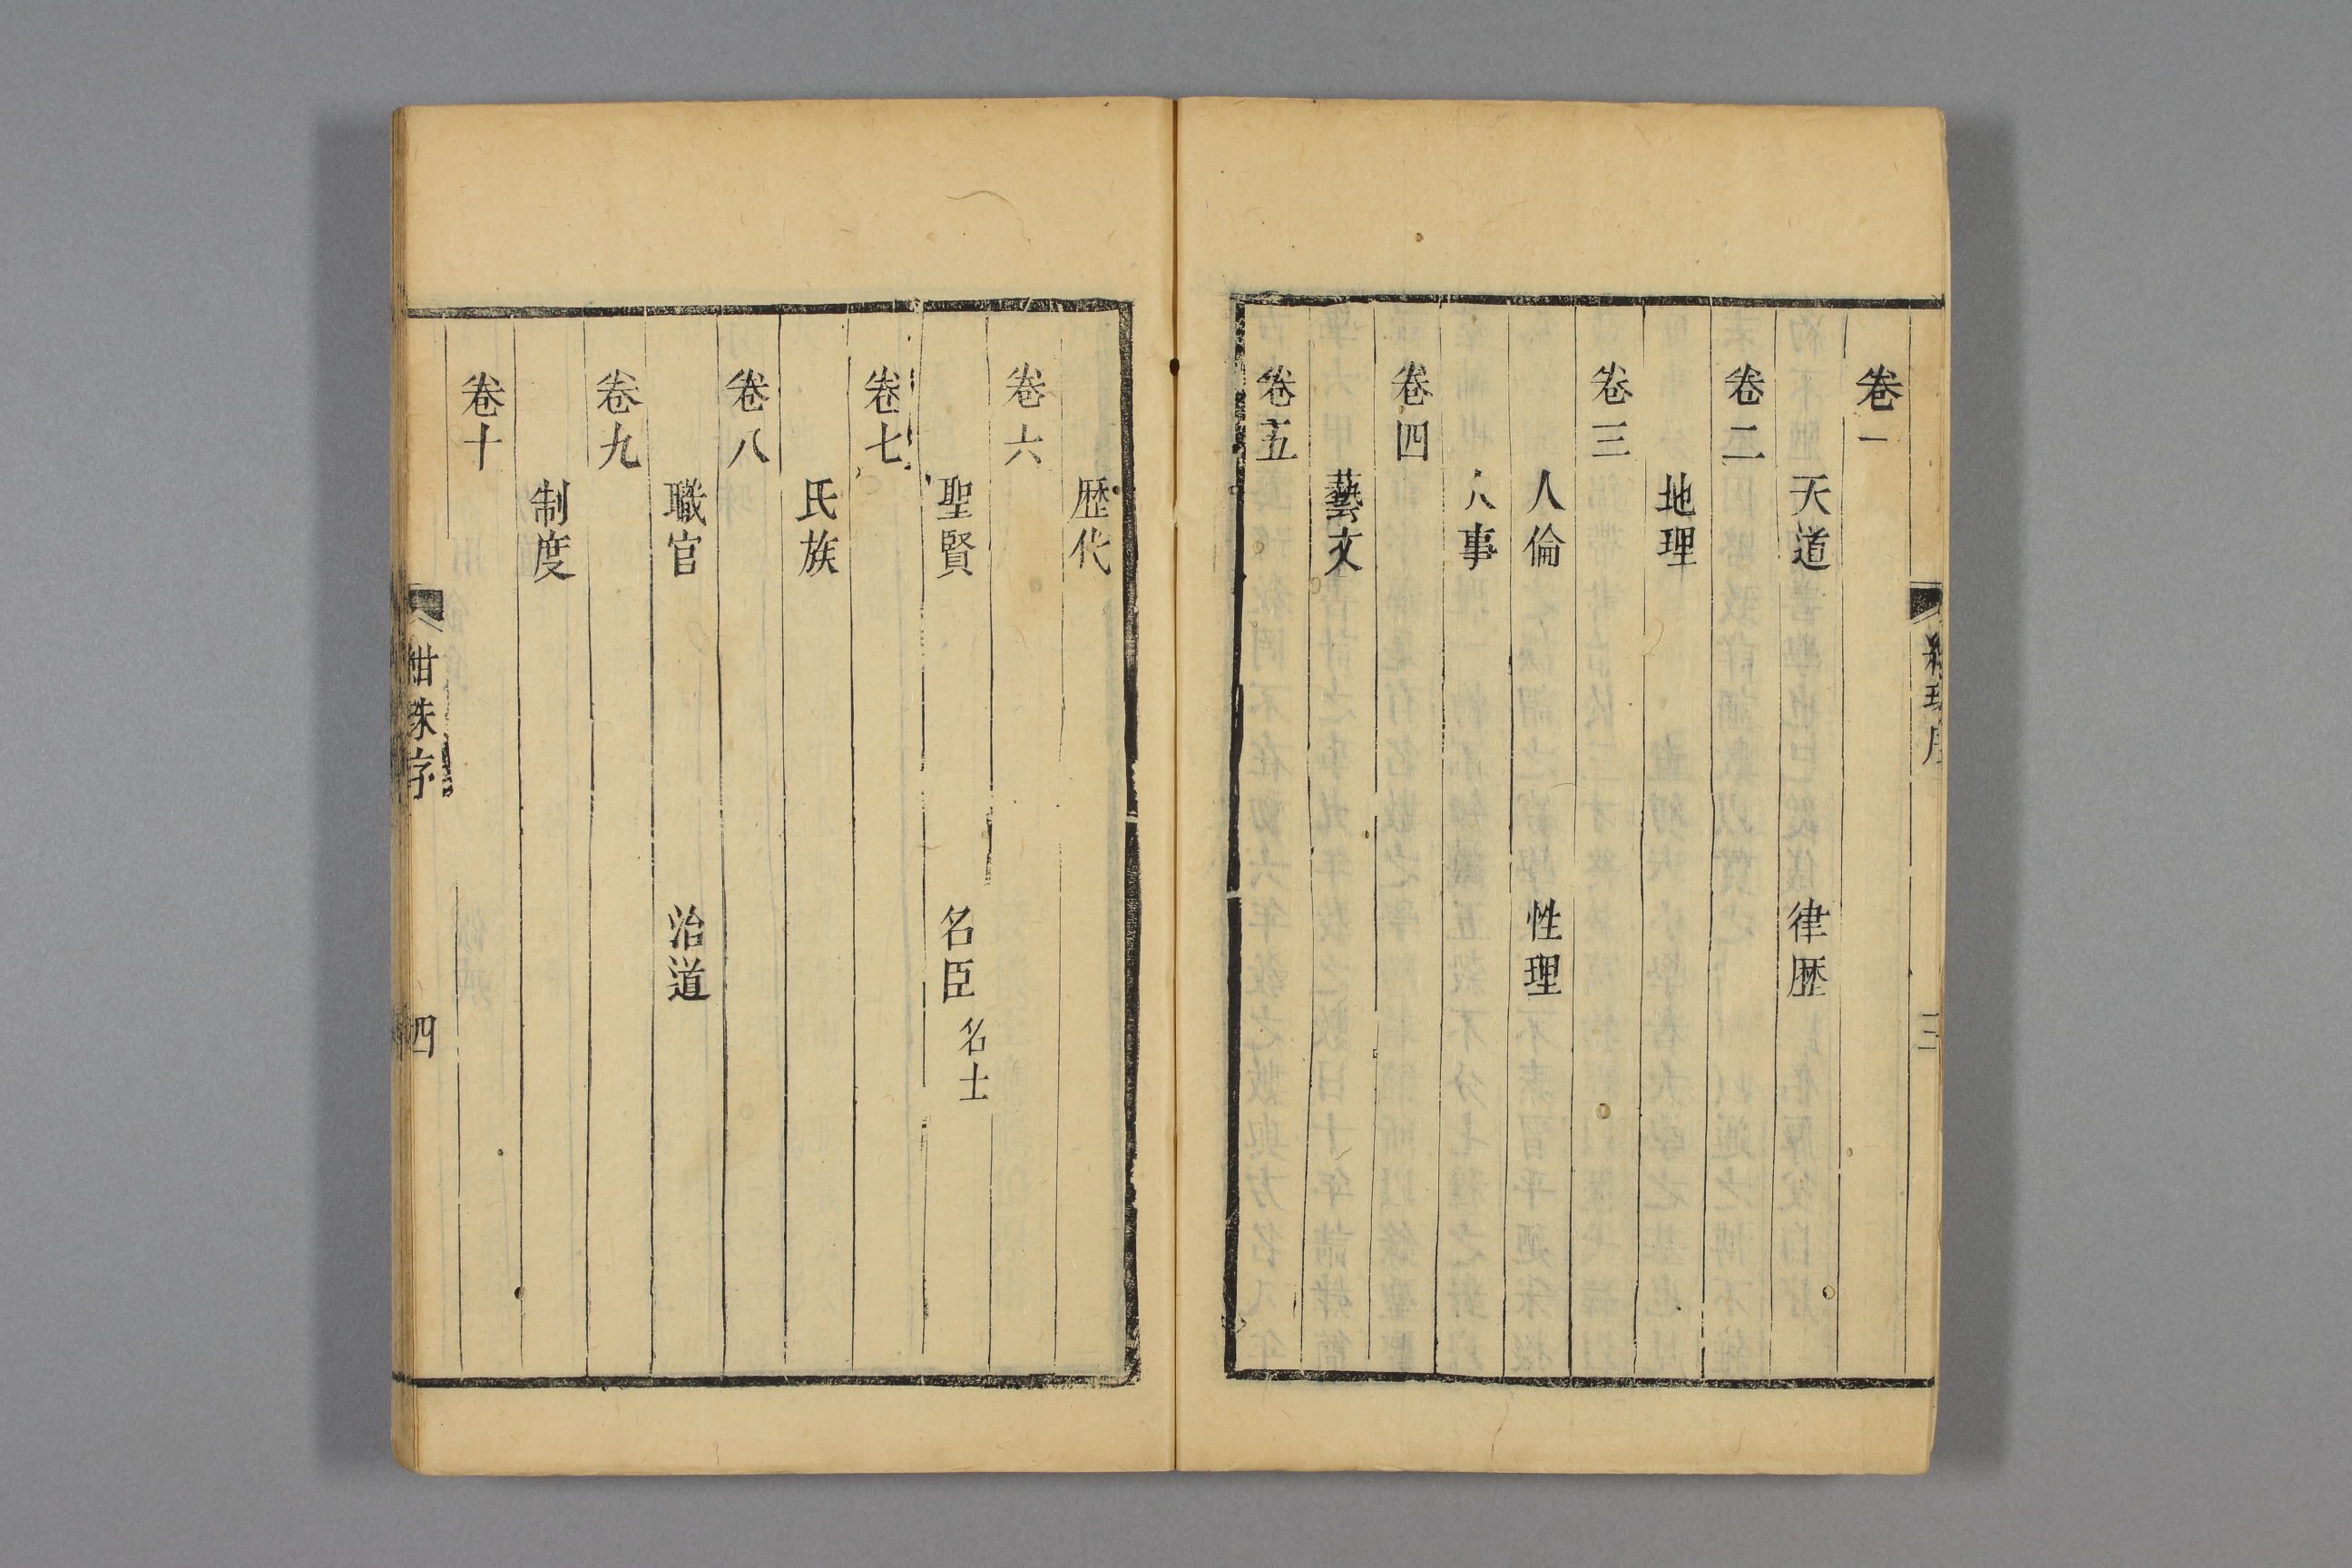 卷一
天道 律歷
卷二
地理
卷三
人倫 性理
人事
卷四
藝文
卷五
歷代
卷六
聖賢 名臣 名士
卷七
氏族
卷八
職官 治道
卷九
制度
卷十
紺珠序 四